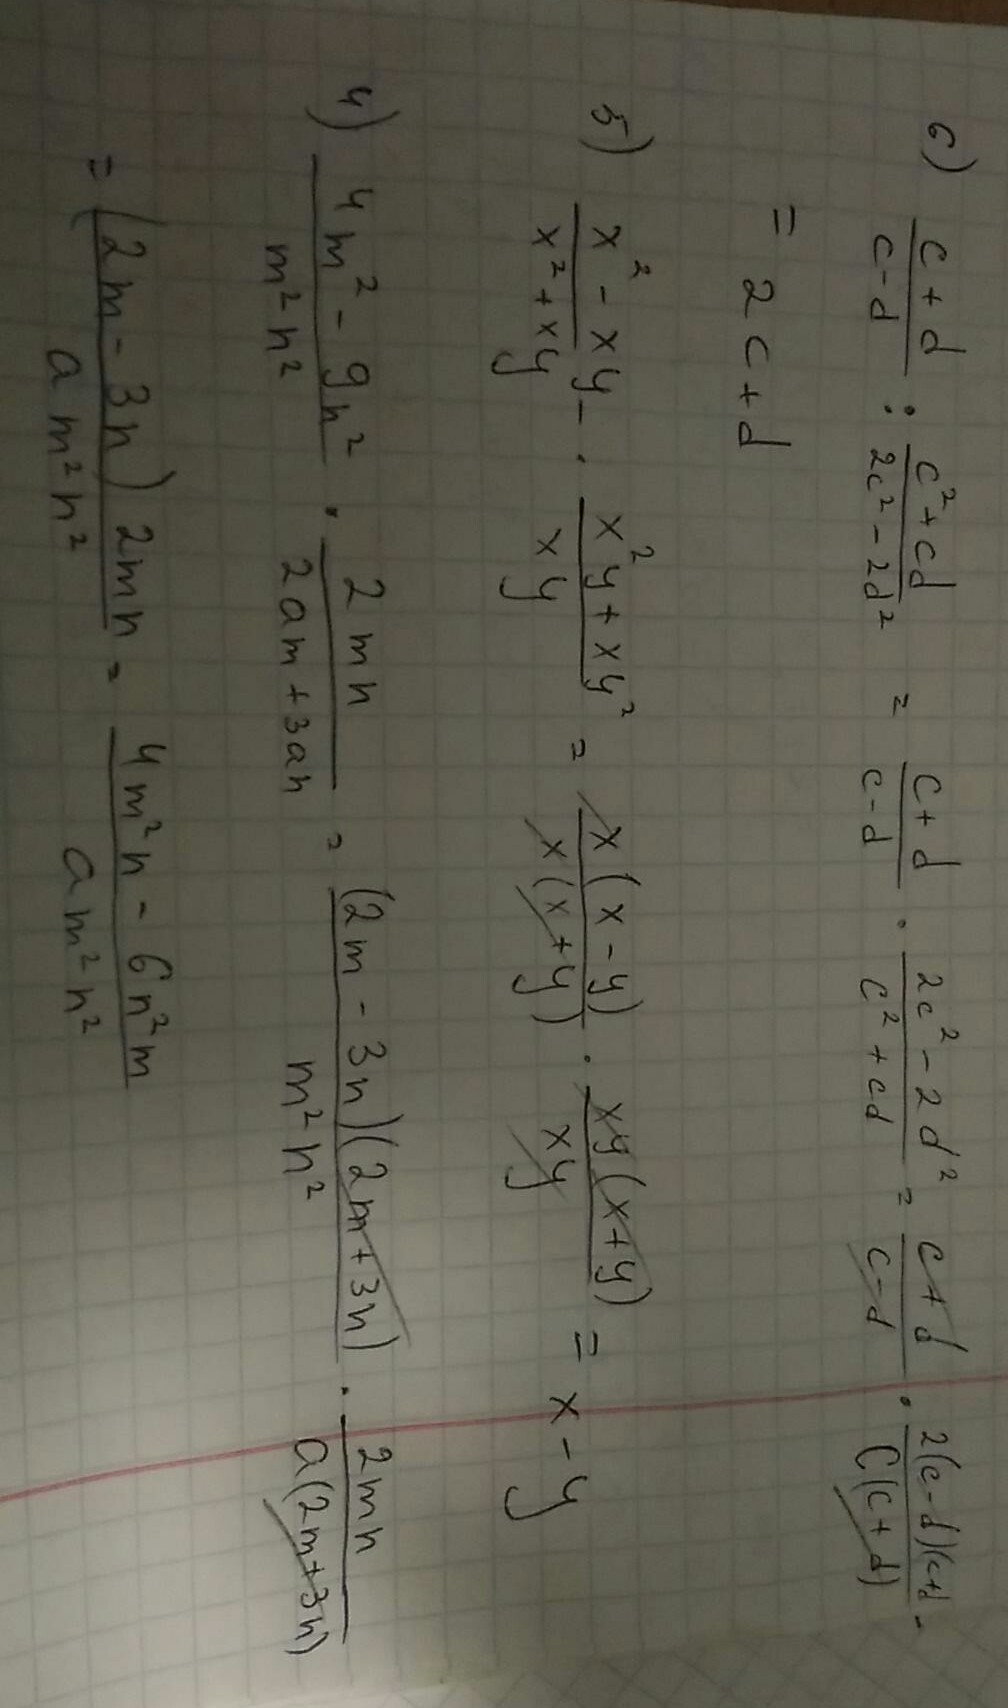 6) (c+d)/(c-d) : (c²+cd)/(2c²-2d²) = (c+d)/(c-d) · (2c²-2d²)/(c²+cd) = (c+d)/(c-d) · 2(c-d)(c+d)/C(c+d) -
= 2c+d
5) (x²-xy)/(x²+xy) · (x²y+xy²)/(xy) = x(x-y)/x(x+y) · xy(x+y)/xy = x-y
4) (4m²-9n²)/(m²n²) · 2mn/(2am+3an) = (2m-3n)(2m+3n)/(m²n²) · 2mn/a(2m+3n)
= (2m-3n)2mn/(am²n²) = (4m²n-6n²m)/(am²n²)